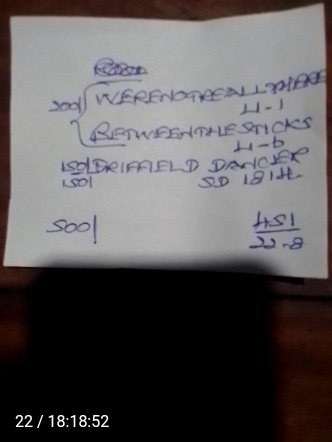 200/ WERENOTREALLYHERE
4-1
BETWEENTHESTICKS
4-6
150/ DRIFFIELD DANCER
150/ SD 1814
500/ 451
22-8
22 / 18:18:52